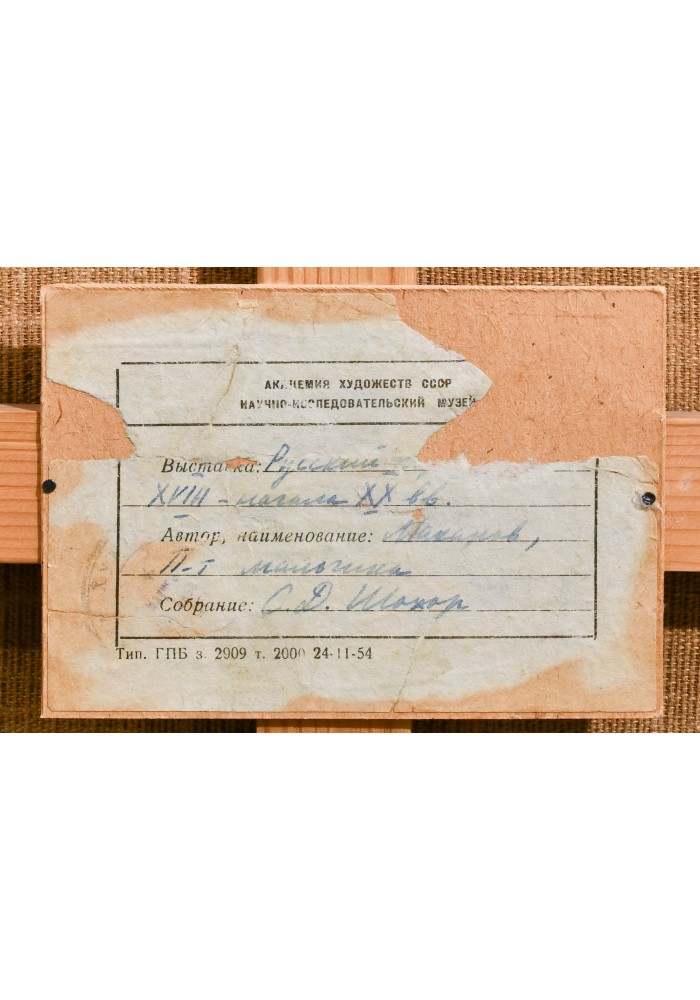 АКАДЕМИЯ ХУДОЖЕСТВ СССР
НАУЧНО-ИССЛЕДОВАТЕЛЬСКИЙ МУЗЕЙ
Выставка: Русский
XVIII – начала XX вв.
Автор, наименование: Макаров,
П-т мальчика
Собрание: С. Д. Шохор
Тип. ГПБ з. 2909 т. 2000 24-11-54